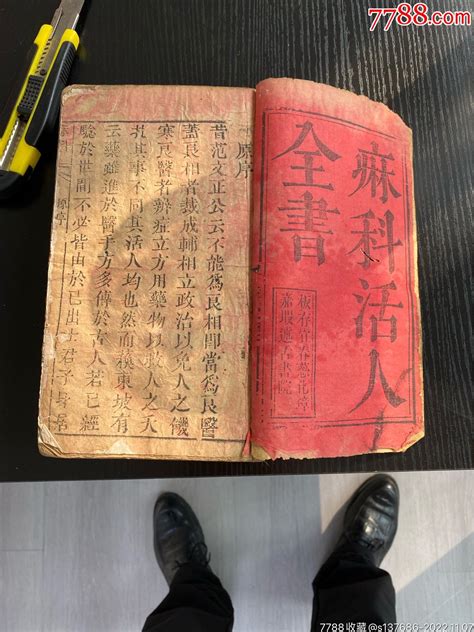 7788.com
痲科活人
全書
板存
書院
原序
昔范文正公云不能爲良相即當爲良醫
蓋良相者裁成輔相立政治以免人之饑
寒良醫者辨症立方用藥物以救人之夭
札其事不同其活人均也然而蘇東坡有
云藥雖進於醫手方多傳於古人若已經
驗於世間不必皆由於已出士君子身居
7788收藏@s137686-2022.11.07